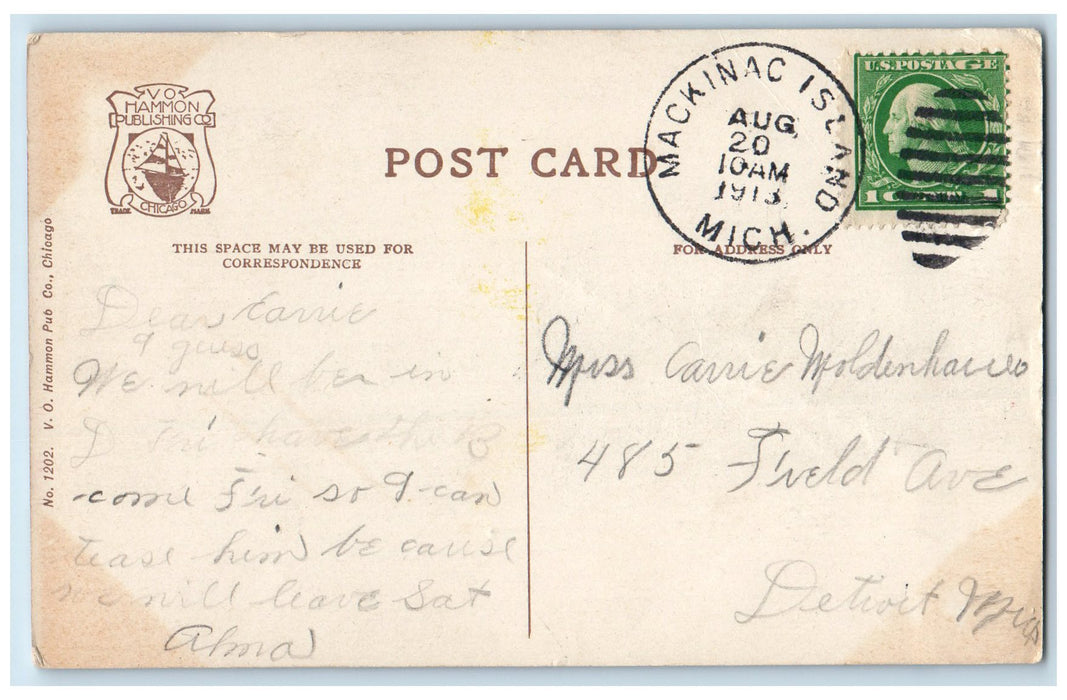 V O
HAMMON
PUBLISHING CO
CHICAGO
TRADE MARK
POST CARD
MACKINAC ISLAND
AUG
20
10 AM
1913
MICH.
U.S. POSTAGE
1 1
THIS SPACE MAY BE USED FOR
CORRESPONDENCE
FOR ADDRESS ONLY
No. 1202. V. O. Hammon Pub Co., Chicago
Dear Carrie
I guess
We will be in
D Fri have the
come Fri so I can
tease him be cause
we will leave Sat
Alma
Miss Carrie Moldenhauer
485 Field Ave
Detroit Mich